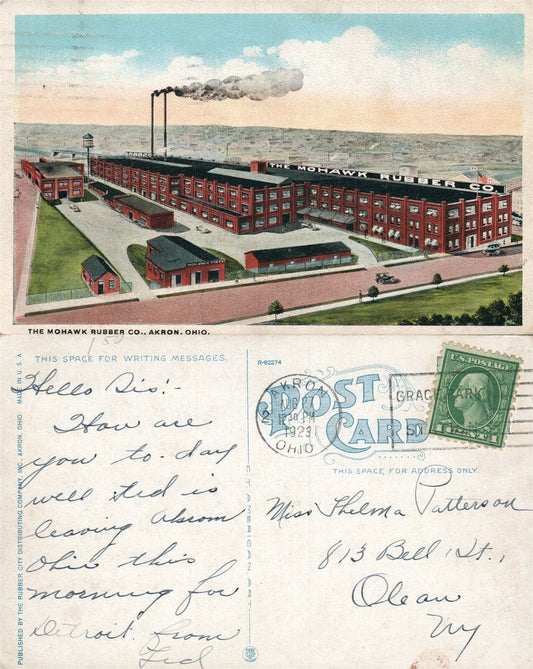 THE MOHAWK RUBBER CO.
THE MOHAWK RUBBER CO., AKRON, OHIO.
150
THIS SPACE FOR WRITING MESSAGES.
Hello Sis!-
How are
you to-day
well Ted is
leaving Akron
Ohio this
morning for
Detroit. from
Ted
PUBLISHED BY THE RUBBER CITY DISTRIBUTING COMPANY, INC. AKRON, OHIO. MADE IN U.S.A.
R-82274
POST
CARD
AKRON
2
30 PM
1923
OHIO
GRACE PARK
U.S. POSTAGE
1 CENT 1
THIS SPACE FOR ADDRESS ONLY.
Miss Thelma Patterson
813 Bell St.,
Olean
Ny